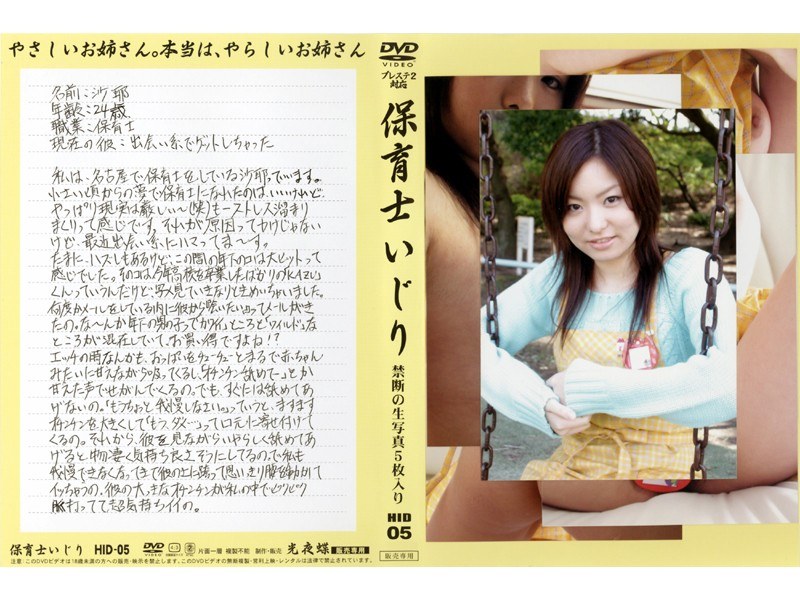 やさしいお姉さん。本当は、やらしいお姉さん
名前：沙耶
年齢：24歳
職業：保育士
現在の彼：出会い系でゲットしちゃった
私は、名古屋で保育士をしている沙耶っていいます。
小さい頃からの夢で保育士になれたのは、いいけれど、
やっぱり現実は厳しい〜(笑)もーストレス溜まり
まくりって感じです。それが原因ってわけじゃない
けど、最近出会い系にハマってま〜す。
たまに、ハズレもあるけど、この間の年下のコは大ヒットって
感じでした。そのコは今年高校を卒業したばかりの
くんっていうんだけど、写メ見ていきなりときめいちゃいました。
何度かメールをしている内に彼から会いたいってメールがき
たの。な〜んか年下の男の子って「カワイイ」ところと「ワイルド」な
ところが混在していて、お買い得ですよね!?
エッチの時なんかも、おっぱいをチューチューとまるで赤ちゃん
みたいに甘えながら吸ってくるし、「オチンチン舐めて〜」とか
甘えた声でせがんでくるの。でも、すぐには舐めてあ
げないの。「もうちょっと我慢しなさい。」っていうと、ますます
オチンチンを大きくして「もう、ダメ…」って口元に寄せ付けて
くるの。それから、彼を見ながらいやらしく舐めてあ
げると物凄く気持ち良さそうにしてるので、私も
我慢できなくなってきて彼の上に跨って思いっきり腰を動かして
イッちゃうの。彼の大っきなオチンチンが私の中でビクビク
脈打ってて超気持ちイイの。
保育士いじり HID-05 DVD VIDEO 片面一層 複製不能 制作・販売 光夜蝶 販売専用
注意：このDVDビデオは18歳未満の方への販売・映示を禁止します。このDVDビデオの無断複製・営利上映・レンタルは法律で禁止されています。
DVD
VIDEO
プレステ2
対応
保育士いじり
禁断の生写真5枚入り
HID
05
販売専用